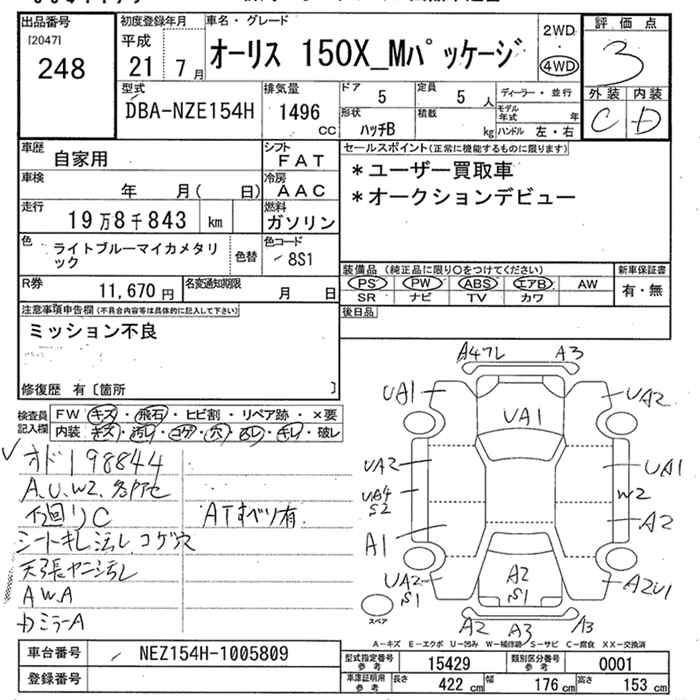 出品番号
[2047]
248
初度登録年月
平成
21 7月
車名・グレード
オーリス 150X_Mパッケージ
2WD
4WD
評価点
3
外装 内装
C D
型式
DBA-NZE154H
排気量
1496 CC
ドア 5
定員 5 人
形状 ハッチB
積載 kg
ディーラー・並行
モデル年式 年
ハンドル 左・右
車歴
自家用
シフト
FAT
車検
年 月( 日)
冷房
AAC
走行
19万8千843 km
燃料
ガソリン
セールスポイント(正常に機能するものに限ります)
*ユーザー買取車
*オークションデビュー
色
ライトブルーマイカメタリック
色替
色コード
8S1
R券
11,670 円
名変通知期限
月 日
装備品(純正品に限り○をつけてください)
PS PW ABS エアB AW
SR ナビ TV カワ
新車保証書
有・無
後日品
注意事項申告欄(不具合内容等は具体的に記入して下さい)
ミッション不良
修復歴 有〔箇所 〕
検査員記入欄
FW キズ・飛石・ヒビ割・リペア跡・×要
内装 キズ・汚レ・コゲ・穴・ヌレ・キレ・破レ
オド198844
A.U.W2.多好セ
下廻リC ATすべリ有
シートキレ汚レコゲ穴
天張ヤニ汚レ
AWA
DミラーA
A4フレ A3
UA1 UA2
UA1
UA2 UA1
UA4 S2 W2
A1 A2
UA2 S1 A2 S1 A2U1
A2 A3 A3
スペア
A-キズ E-エクボ U-凹み W-補修跡 S-サビ C-腐食 XX-交換済
車台番号
NEZ154H-1005809
登録番号
型式指定番号参考 15429
類別区分番号参考 0001
車庫証明用参考 長さ 422 cm 幅 176 cm 高さ 153 cm